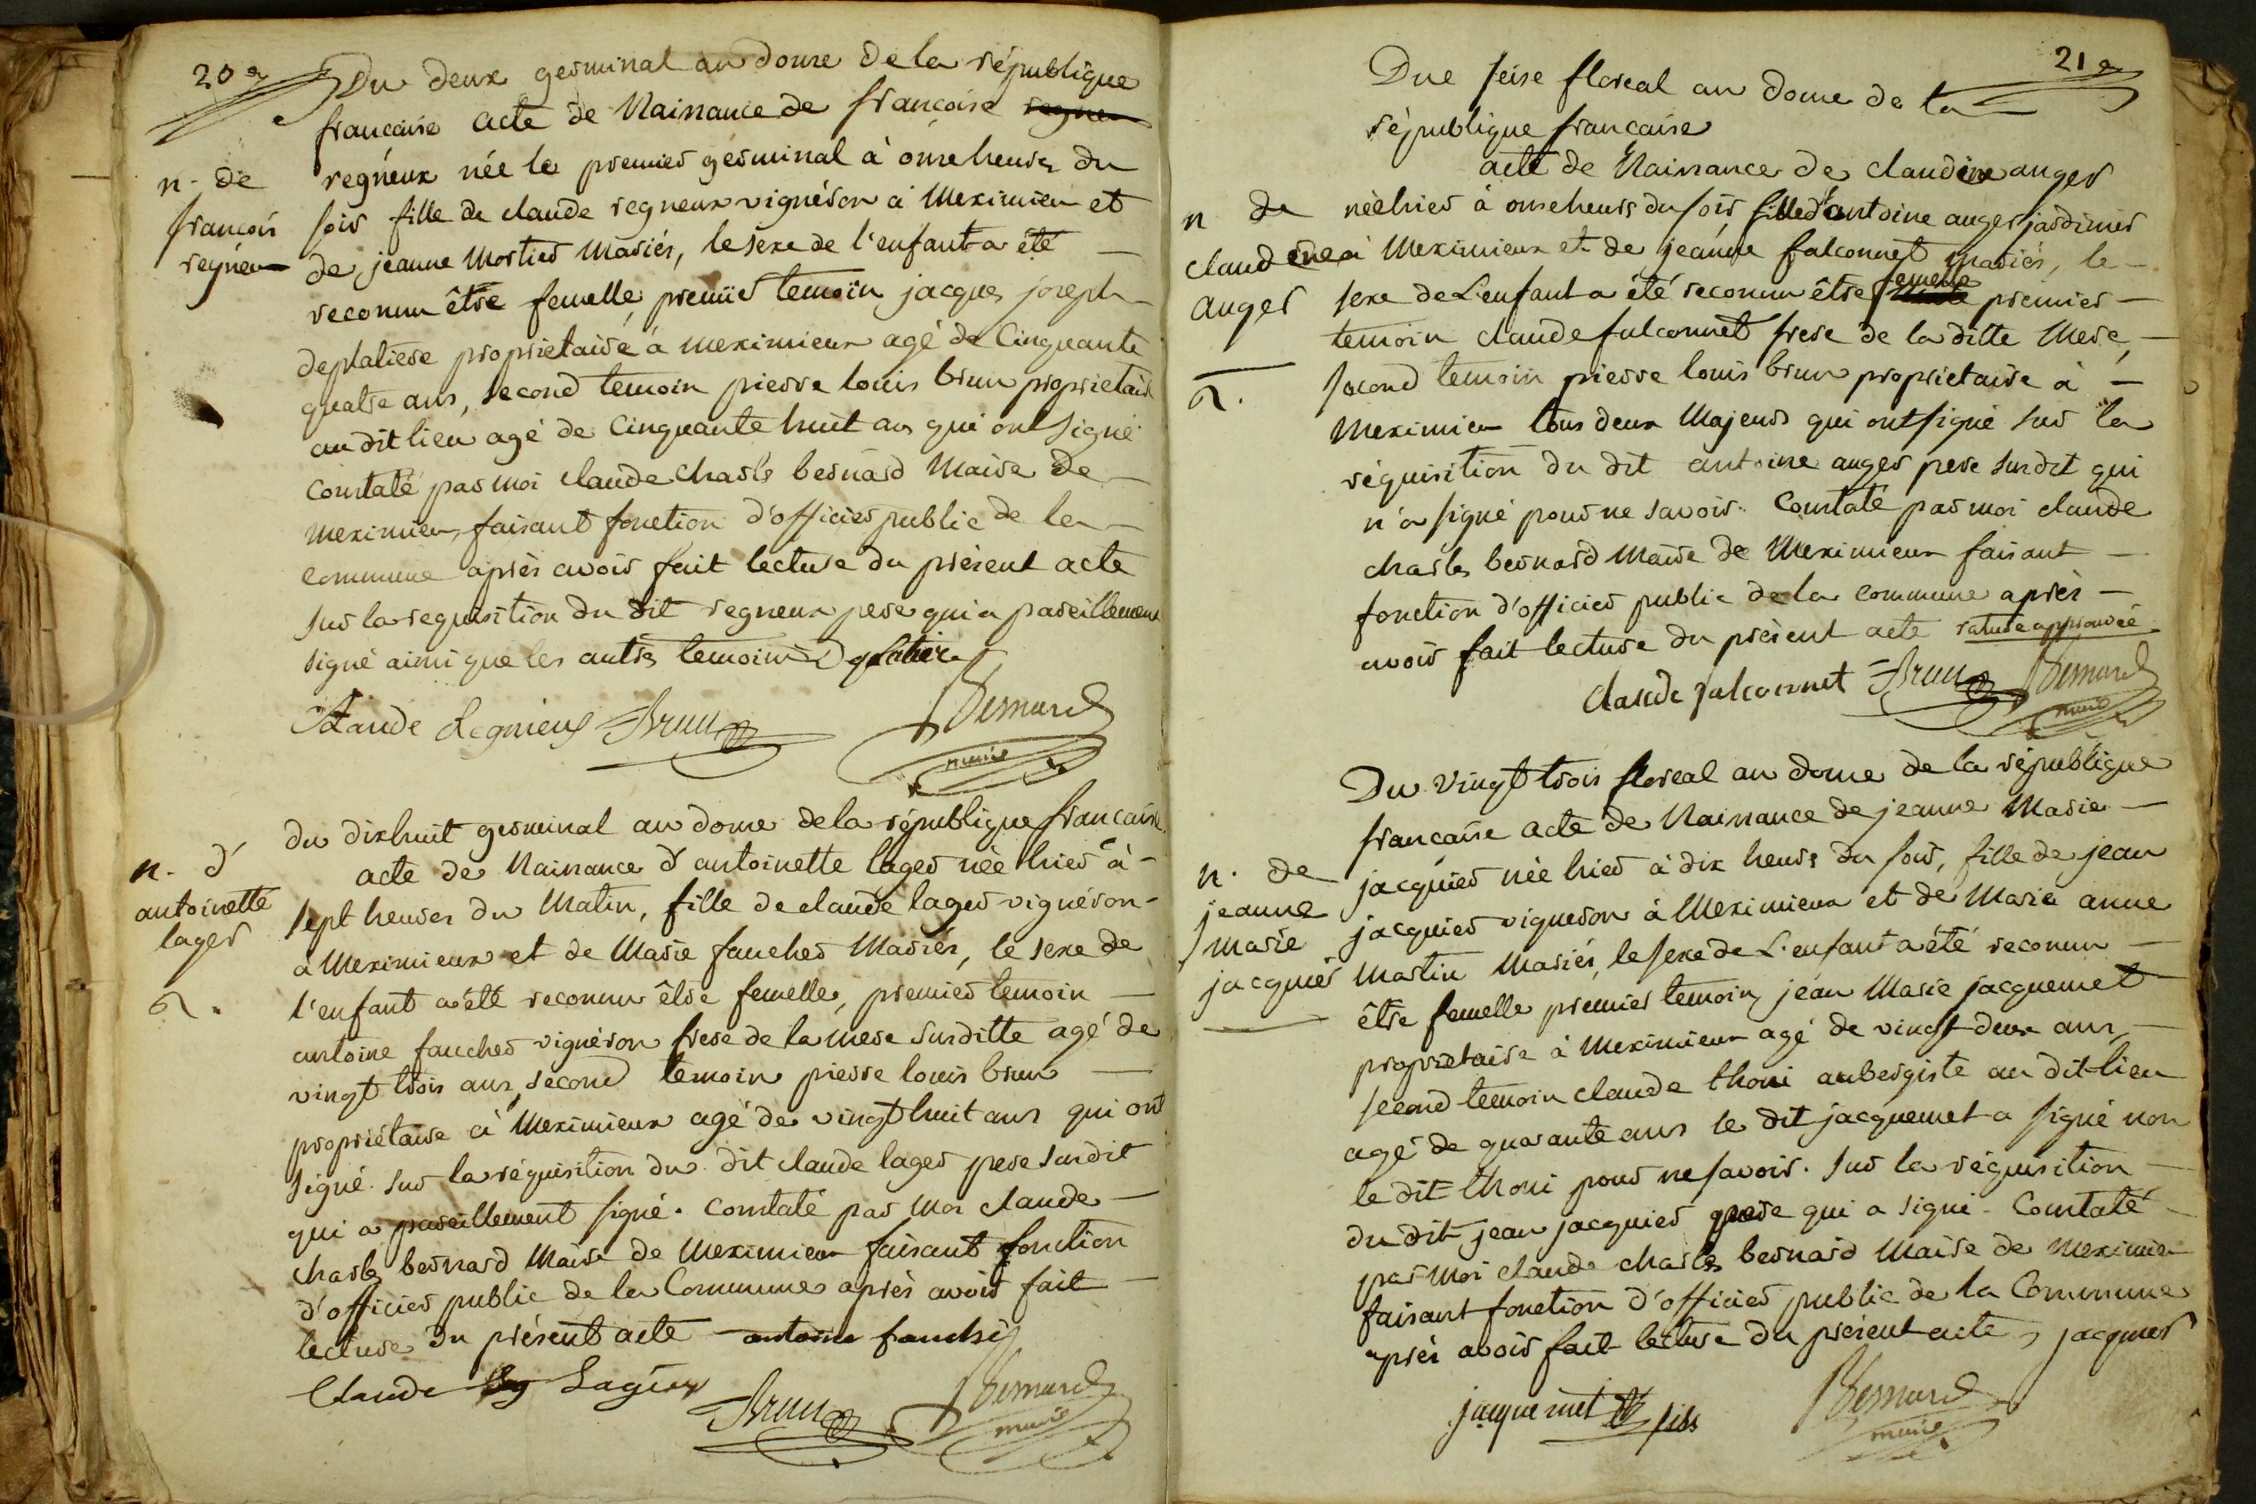 20e
Du deux germinal an douze de la république
francaise acte de Naissance de francoise regneu
regneux née le premier germinal à onze heures du
soir fille de claude regneux vignéron à Meximieu et
de jeanne Mortier Mariés, le sexe de l'enfant a été
reconnu être femelle, premier temoin jacques joseph
deplatiere proprietairé à meximieux agé de Cinquante
quatre ans, second temoin pierre louis brun proprietaire
au dit lieu agé de Cinquante huit ans qui ont Signé
Constaté par moi claude charles bernard Maire de
meximieu, faisant fonction d'officier public de la
commune après avoir fait lecture du présent acte
sur la requisition du dit regneux pere qui a pareillement
signé ainsi que les autres temoins Dplatiere
Claude Regnieux Brun Bernard
maire
n. de
francois
regneu
du dixhuit germinal an douze de la république francaise
acte de Naissance d'antoinette lager née hier à
sept heures du Matin, fille de claude lager vignéron
à Meximieux et de Marie faucher Mariés, le sexe de
l'enfant a été reconnu être femelle, premier temoin
antoine faucher vignéron frere de la mere susditte agé de
vingt trois ans, second temoin pierre louis brun
propriétaire à Meximieux agé de vingt huit ans qui ont
signé sur la réquisition du dit claude lager pere susdit
qui a pareillement signé. constaté par moi claude
charles bernard Maire de Meximieux faisant fonction
d'officier public de la Commune après avoir fait
lecture du présent acte antoine fauché
Claude Lagier
Brun Bernard
maire
n. d'
antoinette
lager
21e
Due seise floreal an douze de la
république francaise
acte de Naissance de claudine anger
née hier à onse heurs du soir, fille d'antoine anger jardinier
à Meximieux et de jeanne falconnet mariés, le
sexe de L'enfant a été reconnu être femelle premier
temoin claude falconnet frere de la ditte Mere,
second temoin pierre louis brun proprietaire à
Meximieu tous deux Majeurs qui ont signé sur la
réquisition du dit antoine anger pere susdit qui
n'a signé pour ne savoir. Constaté par moi claude
charles bernard Maire de Meximieux faisant
fonction d'officier public de la commune après
avoir fait lecture du présent acte rature approuvée
claude falconnet Brun Bernard
maire
n de
claudine
anger
Du vingt trois floreal an douze de la république
française acte de Naissance de jeanne Marie
jacquier née hier à dix heurs du soir, fille de jean
jacquier vigneron à Meximieux et de Marie anne
Martin Mariés, le sexe de L'enfant a été reconnu
être femelle premier temoin jean Marie jacquemet
proprietaire à Meximieux agé de vingt-deux ans,
second temoin claude thoni aubergiste au dit lieu
agé de quarante ans le dit jacquemet a signé non
le dit thoni pour ne savoir. sur la réquisition
du dit jean jacquier pere qui a signé. Constaté
par moi claude charles bernard Maire de meximieu
faisant fonction d'officier public de la Commune
après avoir fait lecture du présent acte, jacquier
jacquemet fils Bernard
maire
n. de
jeanne
marie
jacquier